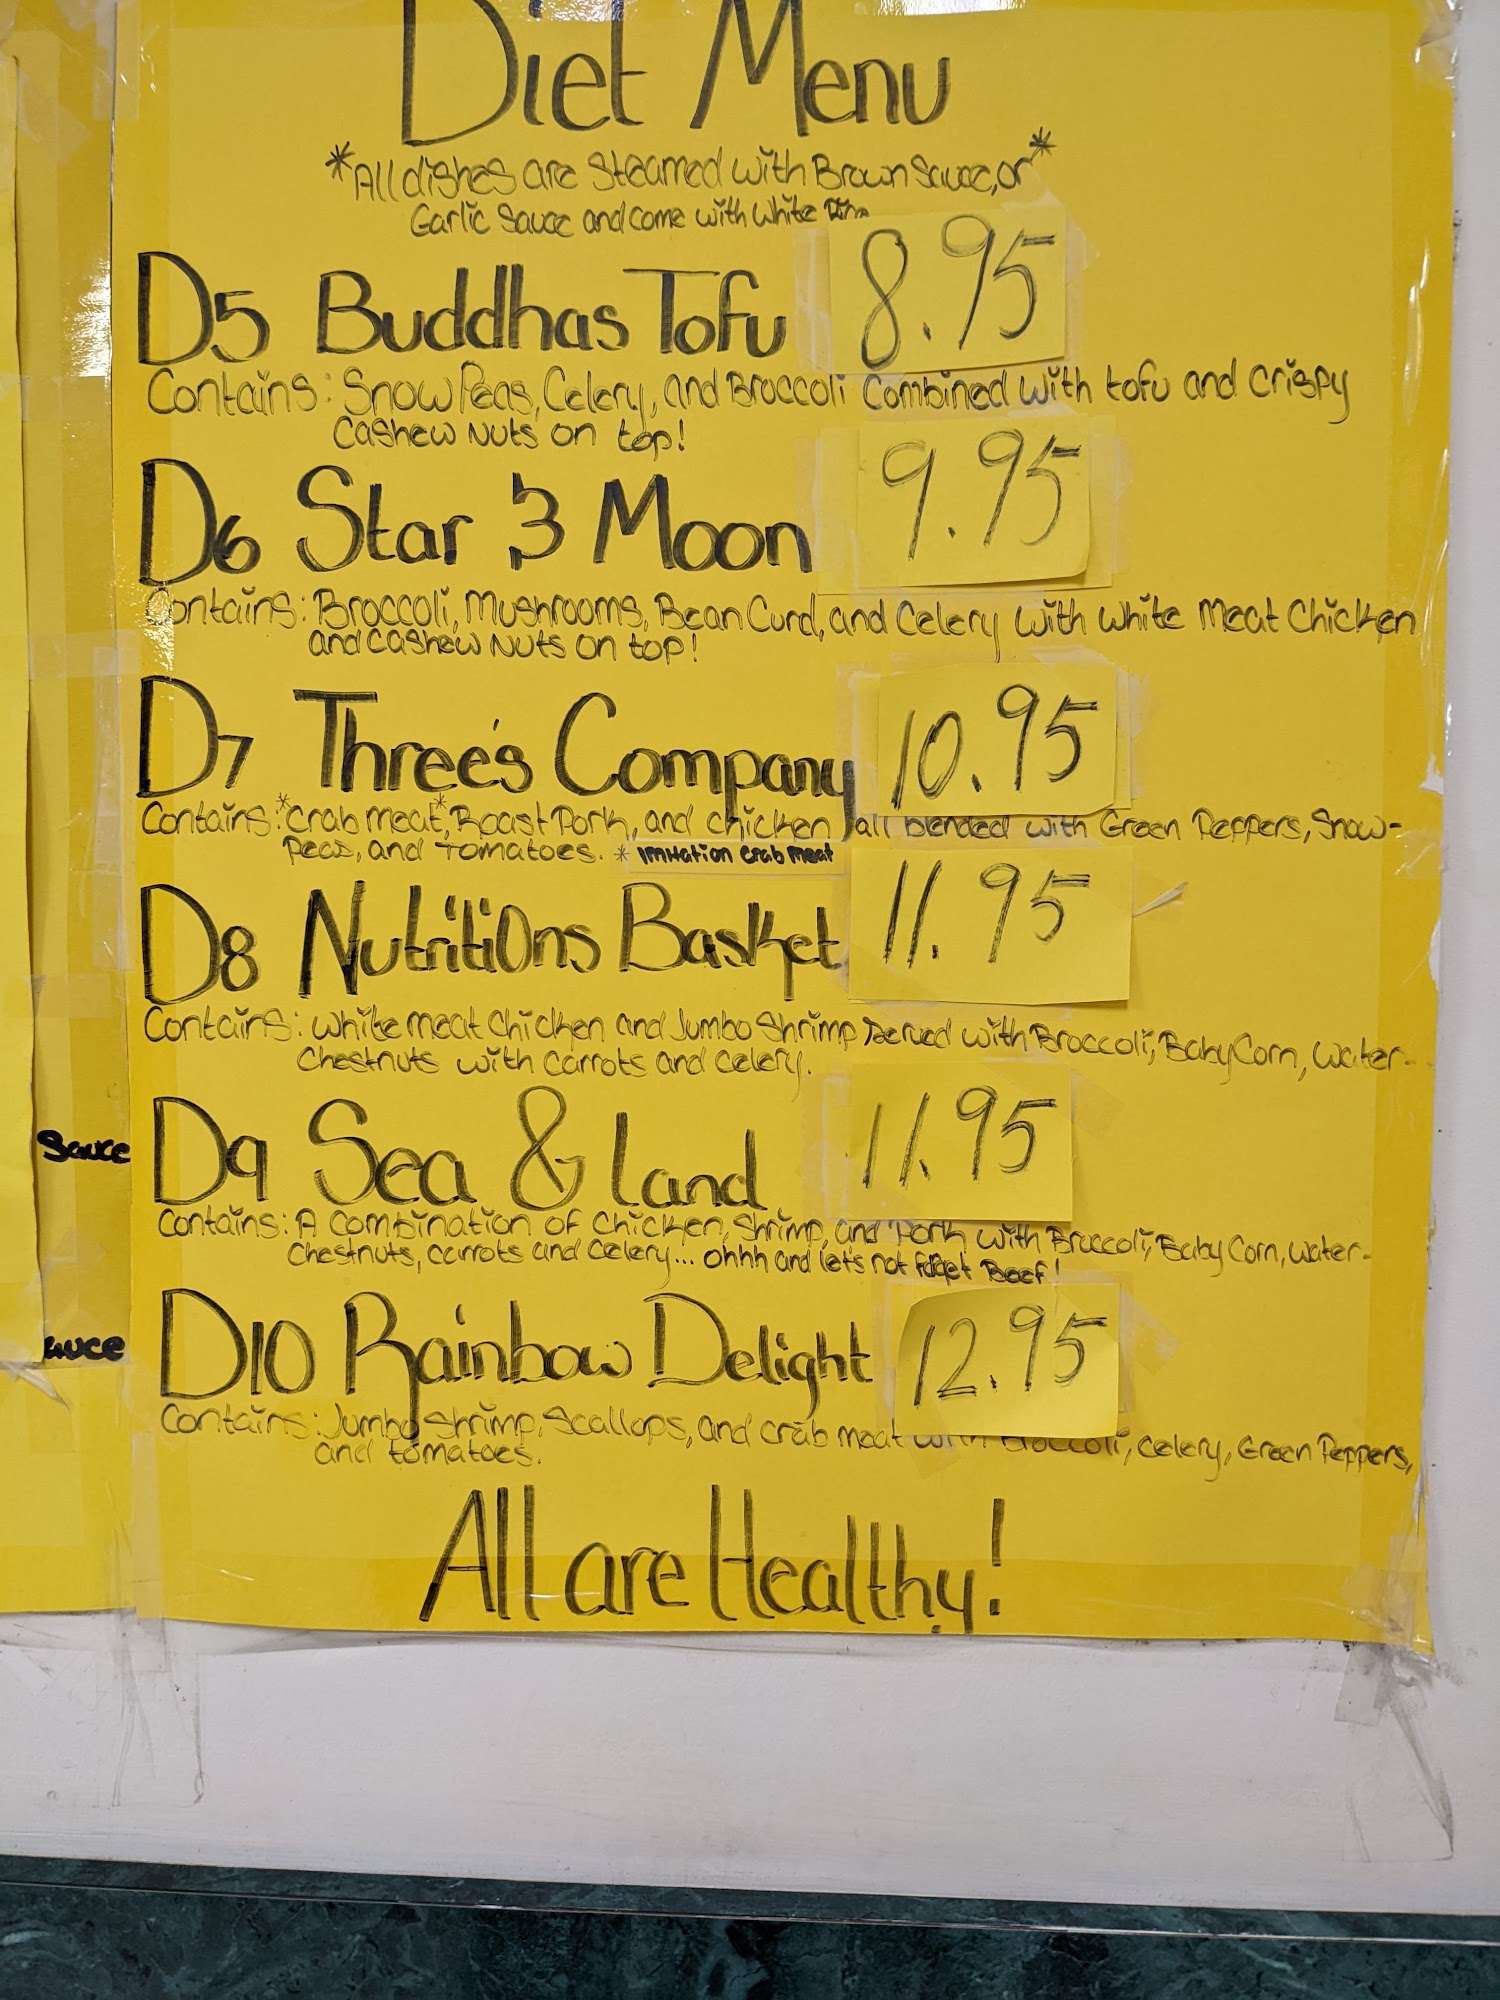 Diet Menu
*All dishes are steamed with Brown Sauce, or*
Garlic Sauce and come with White
D5 Buddhas Tofu 8.95
Contains: Snow Peas, Celery, and Broccoli Combined with tofu and crispy
Cashew Nuts on top!
D6 Star & Moon 9.95
Contains: Broccoli, Mushrooms, Bean Curd, and Celery with White Meat Chicken
and Cashew Nuts on top!
D7 Three's Company 10.95
Contains: *Crab Meat*, Roast Pork, and chicken all blended with Green Peppers, Snow-
Peas, and Tomatoes. * Imitation Crab Meat
D8 Nutritions Basket 11.95
Contains: White Meat Chicken and Jumbo Shrimp Served with Broccoli, Baby Corn, Water-
Chestnuts with Carrots and Celery.
Sauce
D9 Sea & Land 11.95
Contains: A Combination of Chicken, Shrimp, and Pork with Broccoli, Baby Corn, Water-
Chestnuts, Carrots and Celery... ohhh and let's not forget Beef!
D10 Rainbow Delight 12.95
Contains: Jumbo Shrimp, Scallops, and Crab Meat with Broccoli, Celery, Green Peppers,
and Tomatoes.
All are Healthy!